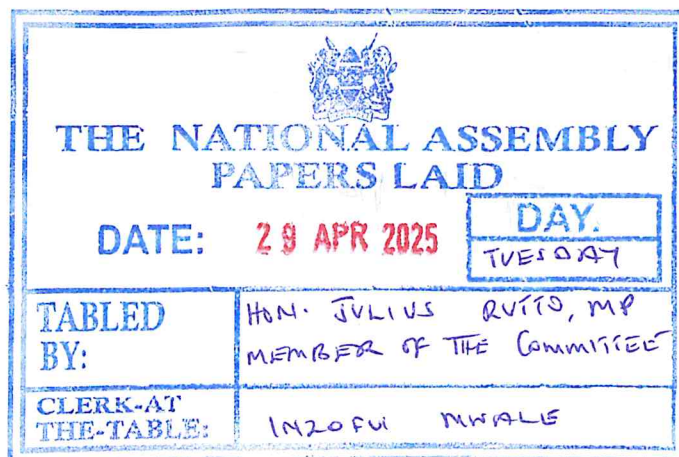 THE NATIONAL ASSEMBLY
PAPERS LAID
DATE: 29 APR 2025
DAY.
TUESDAY
TABLED BY:
HON. JULIUS RUTTO, MP
MEMBER OF THE COMMITTEE
CLERK-AT THE-TABLE:
INZOFU MWALE